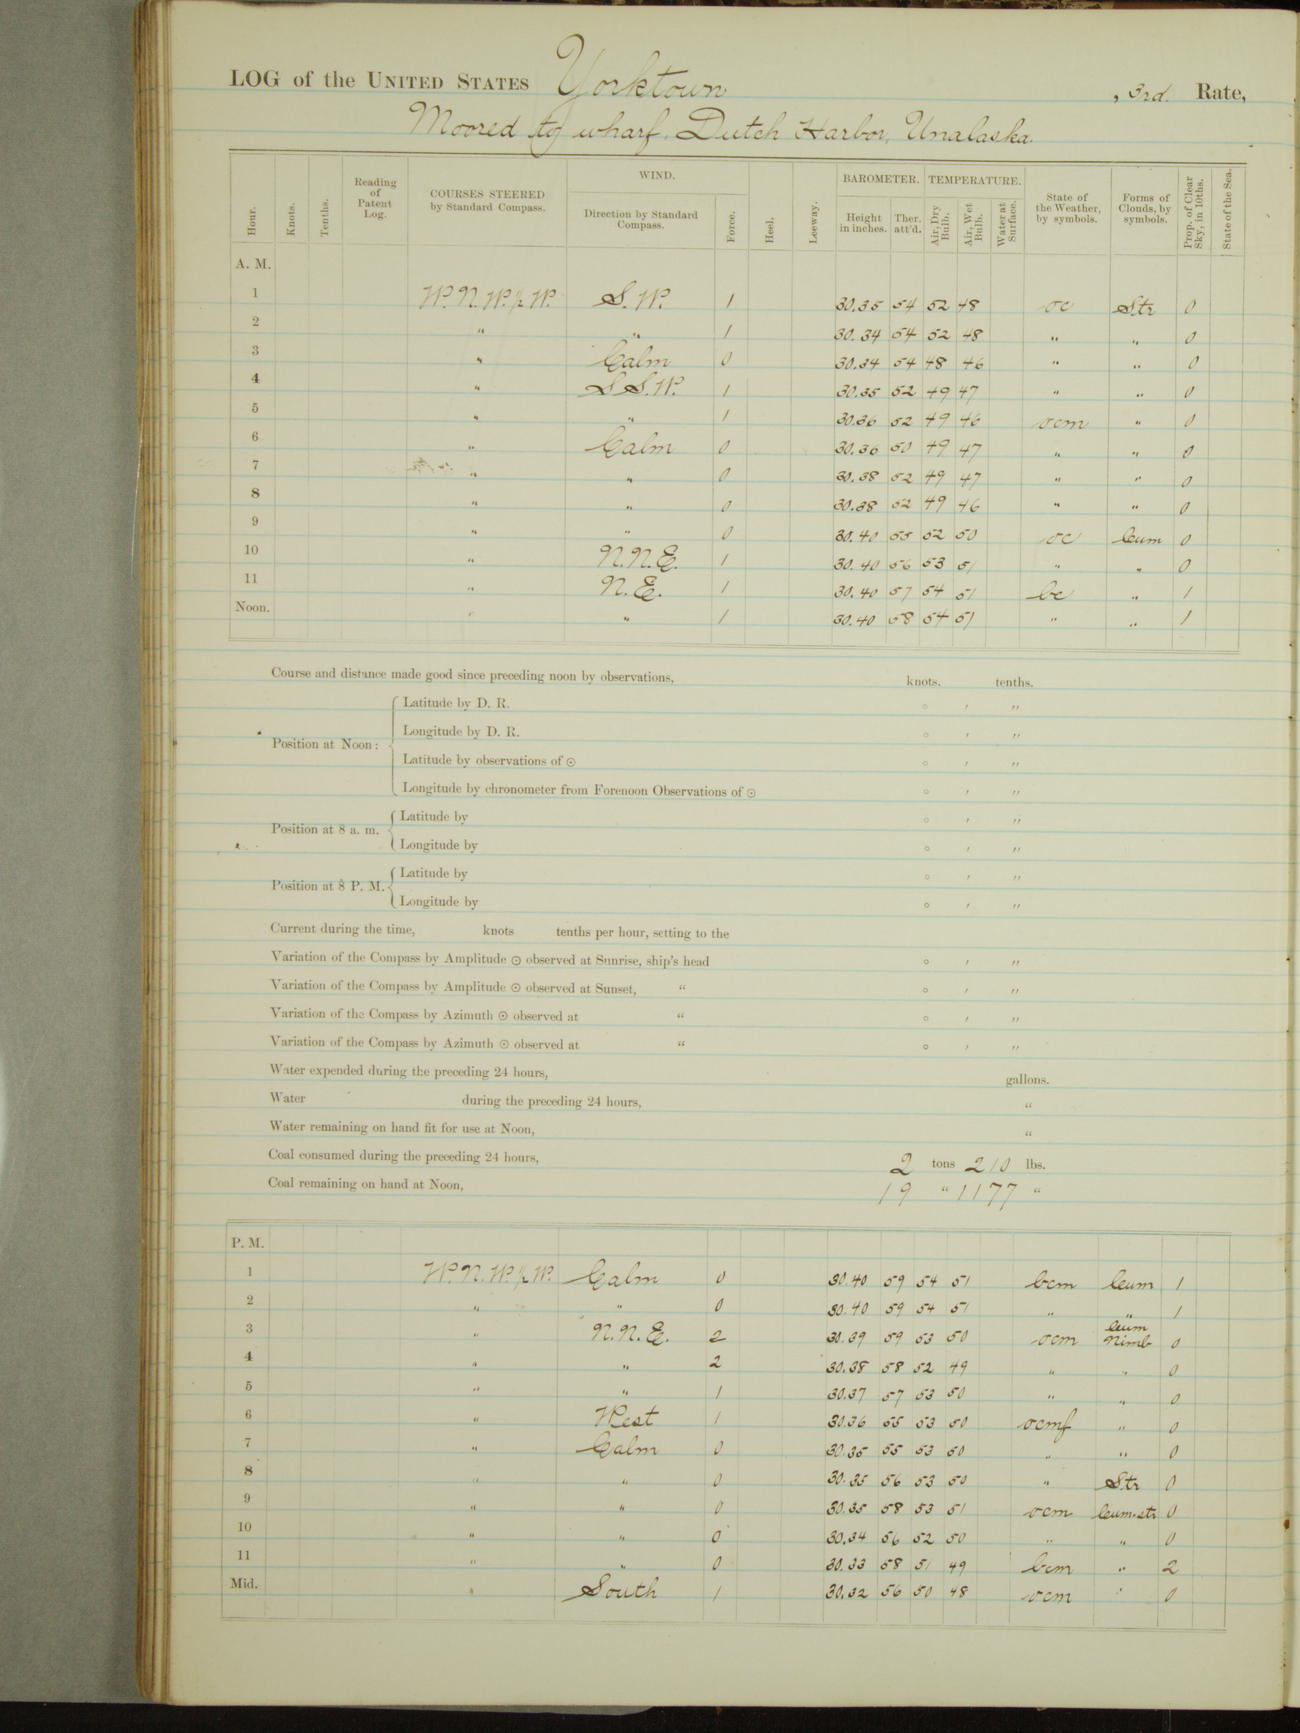 LOG of the UNITED STATES Yorktown , 3rd. Rate,
Moored to wharf, Dutch Harbor, Unalaska.
Hour. Knots. Tenths. Reading of Patent Log. COURSES STEERED by Standard Compass. WIND. Direction by Standard Compass. Force. Heel. Leeway. BAROMETER. Height in inches. Ther. att'd. TEMPERATURE. Air, Dry Bulb. Air, Wet Bulb. Water at Surface. State of the Weather, by symbols. Forms of Clouds, by symbols. Prop. of Clear Sky, in 10ths. State of the Sea.
A. M.
1 W.N.W.½W. S.W. 1 30.35 54 52 48 oc Str 0
2 " " 1 30.34 54 52 48 " " 0
3 " Calm 0 30.34 54 48 46 " " 0
4 " S.S.W. 1 30.35 52 49 47 " " 0
5 " " 1 30.36 52 49 46 ocm " 0
6 " Calm 0 30.36 50 49 47 " " 0
7 " " 0 30.38 52 49 47 " " 0
8 " " 0 30.38 52 49 46 " " 0
9 " " 0 30.40 55 52 50 oc Cum 0
10 " N.N.E. 1 30.40 56 53 51 " " 0
11 " N.E. 1 30.40 57 54 51 bc " 1
Noon. " " 1 30.40 58 54 51 " " 1
Course and distance made good since preceding noon by observations, knots. tenths.
Position at Noon: Latitude by D. R. ° ′ ″
Longitude by D. R. ° ′ ″
Latitude by observations of ⊙ ° ′ ″
Longitude by chronometer from Forenoon Observations of ⊙ ° ′ ″
Position at 8 a. m. Latitude by ° ′ ″
Longitude by ° ′ ″
Position at 8 P. M. Latitude by ° ′ ″
Longitude by ° ′ ″
Current during the time, knots tenths per hour, setting to the
Variation of the Compass by Amplitude ⊙ observed at Sunrise, ship's head ° ′ ″
Variation of the Compass by Amplitude ⊙ observed at Sunset, " ° ′ ″
Variation of the Compass by Azimuth ⊙ observed at " ° ′ ″
Variation of the Compass by Azimuth ⊙ observed at " ° ′ ″
Water expended during the preceding 24 hours, gallons.
Water during the preceding 24 hours, "
Water remaining on hand fit for use at Noon, "
Coal consumed during the preceding 24 hours, 2 tons 210 lbs.
Coal remaining on hand at Noon, 19 " 1177 "
P. M.
1 W.N.W.½W. Calm 0 30.40 59 54 51 bcm Cum 1
2 " " 0 30.40 59 54 51 " " 1
3 " N.N.E. 2 30.39 59 53 50 ocm Cum Nimb 0
4 " " 2 30.38 58 52 49 " " 0
5 " " 1 30.37 57 53 50 " " 0
6 " West 1 30.36 55 53 50 ocmf " 0
7 " Calm 0 30.35 55 53 50 " " 0
8 " " 0 30.35 56 53 50 " Str 0
9 " " 0 30.35 58 53 51 ocm Cum-str 0
10 " " 0 30.34 56 52 50 " " 0
11 " " 0 30.33 58 51 49 bcm " 2
Mid. " South 1 30.32 56 50 48 ocm " 0